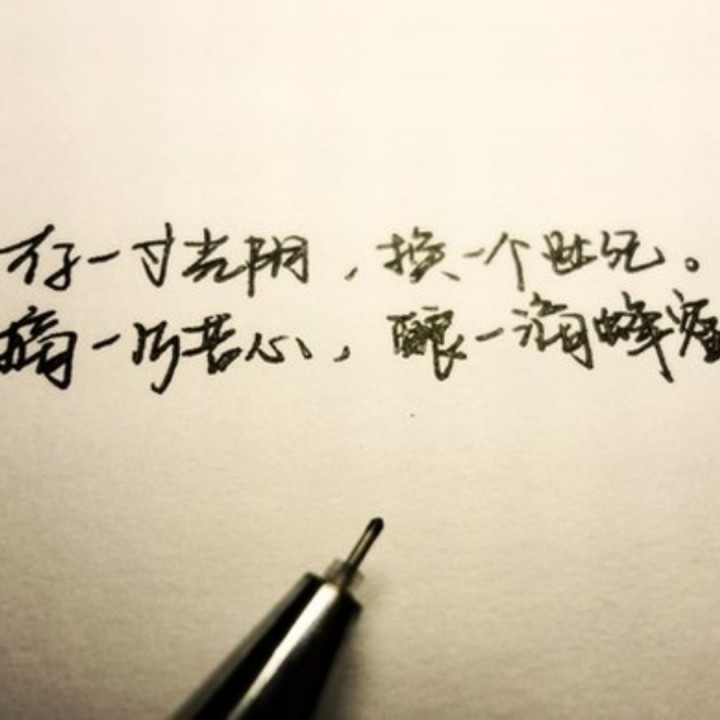 存一寸光阴，换一个世纪。
摘一片苦心，酿一滴蜂蜜